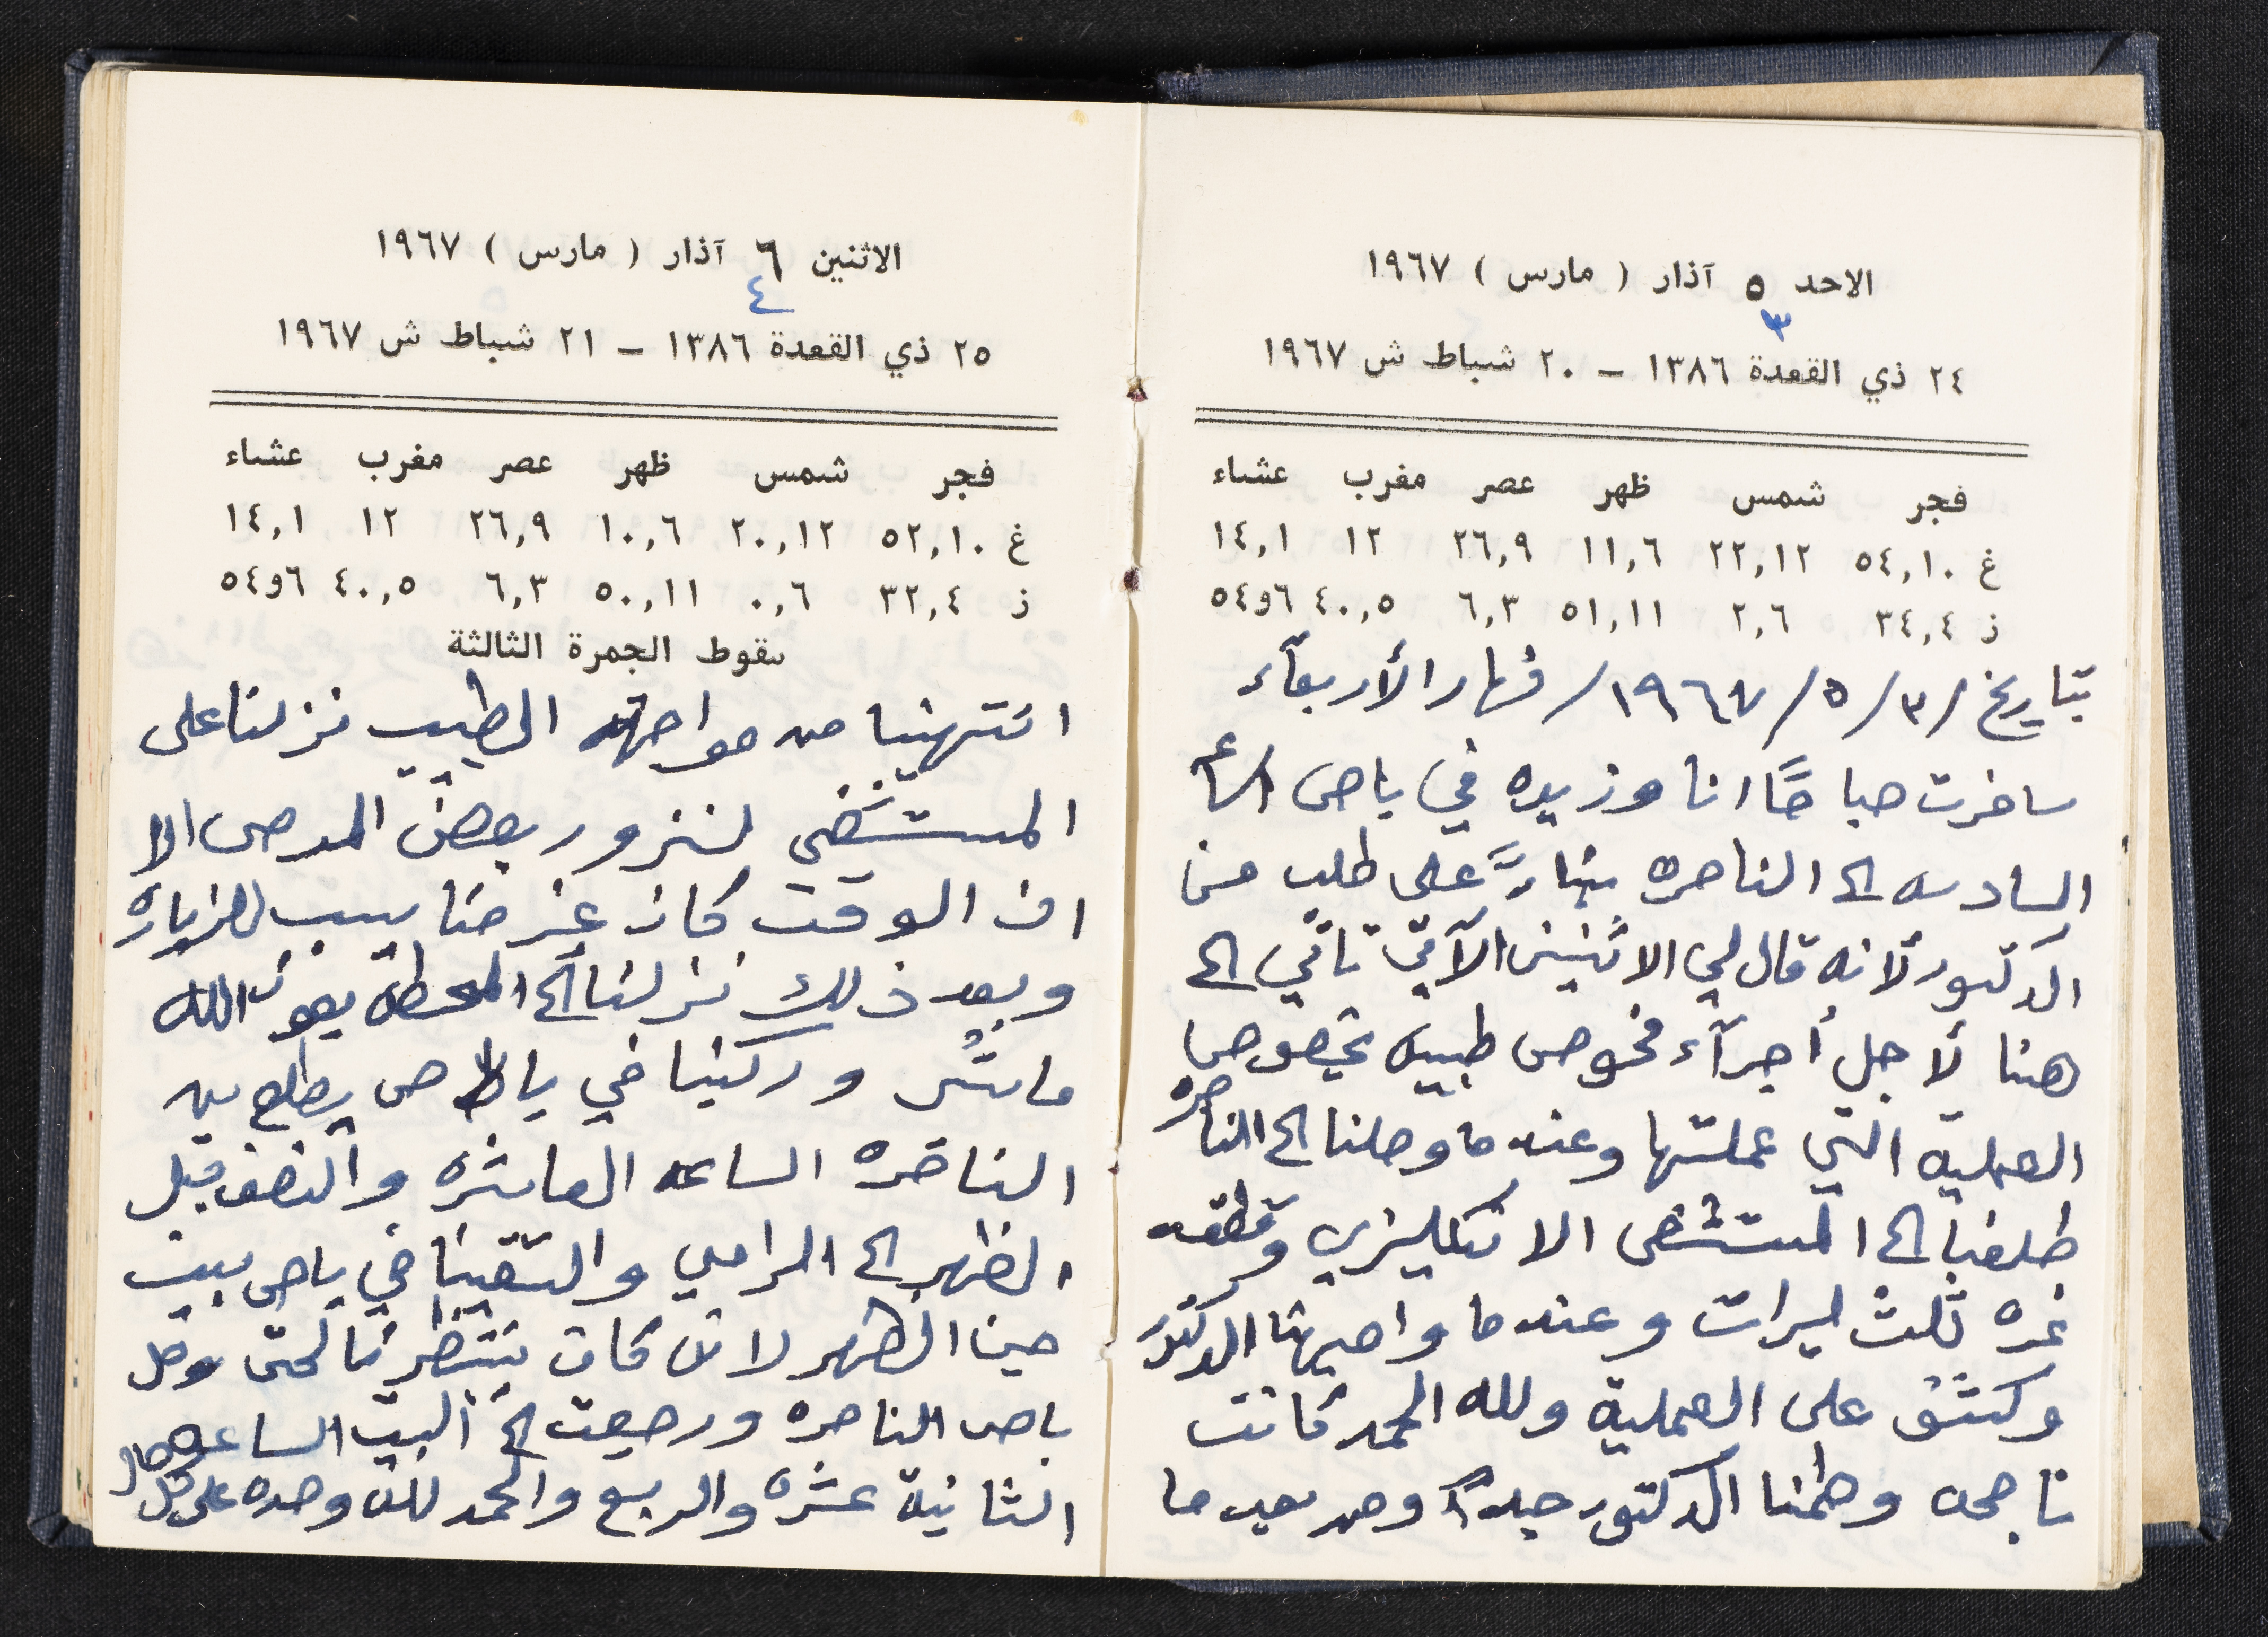 الاحد ٥ آذار ( مارس ) ١٩٦٧
٣
٢٤ ذي القعدة ١٣٨٦ – ٢٠ شباط ش ١٩٦٧
فجر شمس ظهر عصر مغرب عشاء
غ ٥٤,١٠ ٢٢,١٢ ١١,٦ ٢٦,٩ ١٢ ١٤,١
ز ٣٤,٤ ٢,٦ ٥١,١١ ٦,٣ ٤٠,٥ ٦و٥٤
بتاريخ /٣/٥/١٩٦٧/ نهار الأربعآء
سافرت صباحًا انا وزيده في باص الساعه
السادسه الى الناصره بنآءً على طلب من
الدكتور لأنه قال لي الاثنين الآتي تاتي الى
هنا لأجل أجرآء فحوص طبيه بخصوص
العملية التي عملتها وعندما وصلنا الى الناصره
طلعنا الى المستشفى الانكليزي وقطعه
نمره ثلث ليرات وعندما واجهنا الدكتور
وكشف على العملية ولله الحمد كانت
ناجحه وطمنا الدكتور جيداً ومد بعد ما
الاثنين ٦ آذار ( مارس ) ١٩٦٧
٤
٢٥ ذي القعدة ١٣٨٦ – ٢١ شباط ش ١٩٦٧
فجر شمس ظهر عصر مغرب عشاء
غ ٥٢,١٠ ٢٠,١٢ ١٠,٦ ٢٦,٩ ١٢ ١٤,١
ز ٣٢,٤ ٠,٦ ٥٠,١١ ٦,٣ ٤٠,٥ ٦و٥٤
سقوط الجمرة الثالثة
انتهينا من مواجهة الطبيب نزلنا على
المستشفى لنزور بعض المرضى الا
ان الوقت كان غير مناسب للزياره
وبعد ذلك نزلنا الى المحطه بعون الله
ماشي وركبنا في باص يطلع من
الناصره الساعه العاشره والنصف قبل
الظهر الى الرامي والتقينا في باص بيت
جن الظهر لانه كان ينتظرنا لحتى وصل
باص الناصره ورجعت الى البيت الساعه
الثانية عشره والربع والحمد لله وحده على كل حال